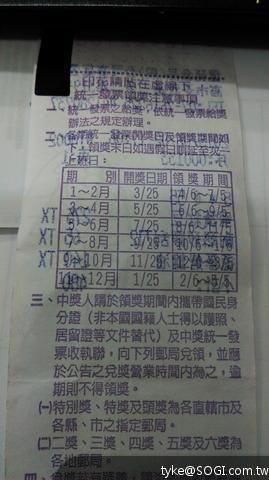 印花請貼在虛線下
統一發票領獎注意事項
統一發票之給獎，依統一發票給獎
辦法之規定辦理。
各期統一發票開獎日及領獎期間如
下，領獎末日如遇假日順延至次一
上班日：
期 別 開獎日期 領獎期間
1～2月 3/25 4/6～7/5
3～4月 5/25 6/6～9/5
5～6月
7～8月 9/25
9～10月 11/25
11～12月 1/25 2/6～5/5
三、中獎人請於領獎期間內攜帶國民身
分證（非本國國籍人士得以護照、
居留證等文件替代）及中獎統一發
票收執聯，向下列郵局兌領，並應
於公告之兌獎營業時間內為之，逾
期則不得領獎。
(一)特別獎、特獎及頭獎為各直轄市及
各縣、市之指定郵局。
(二)二獎、三獎、四獎、五獎及六獎為
各地郵局。
tyke@SOGI.com.tw